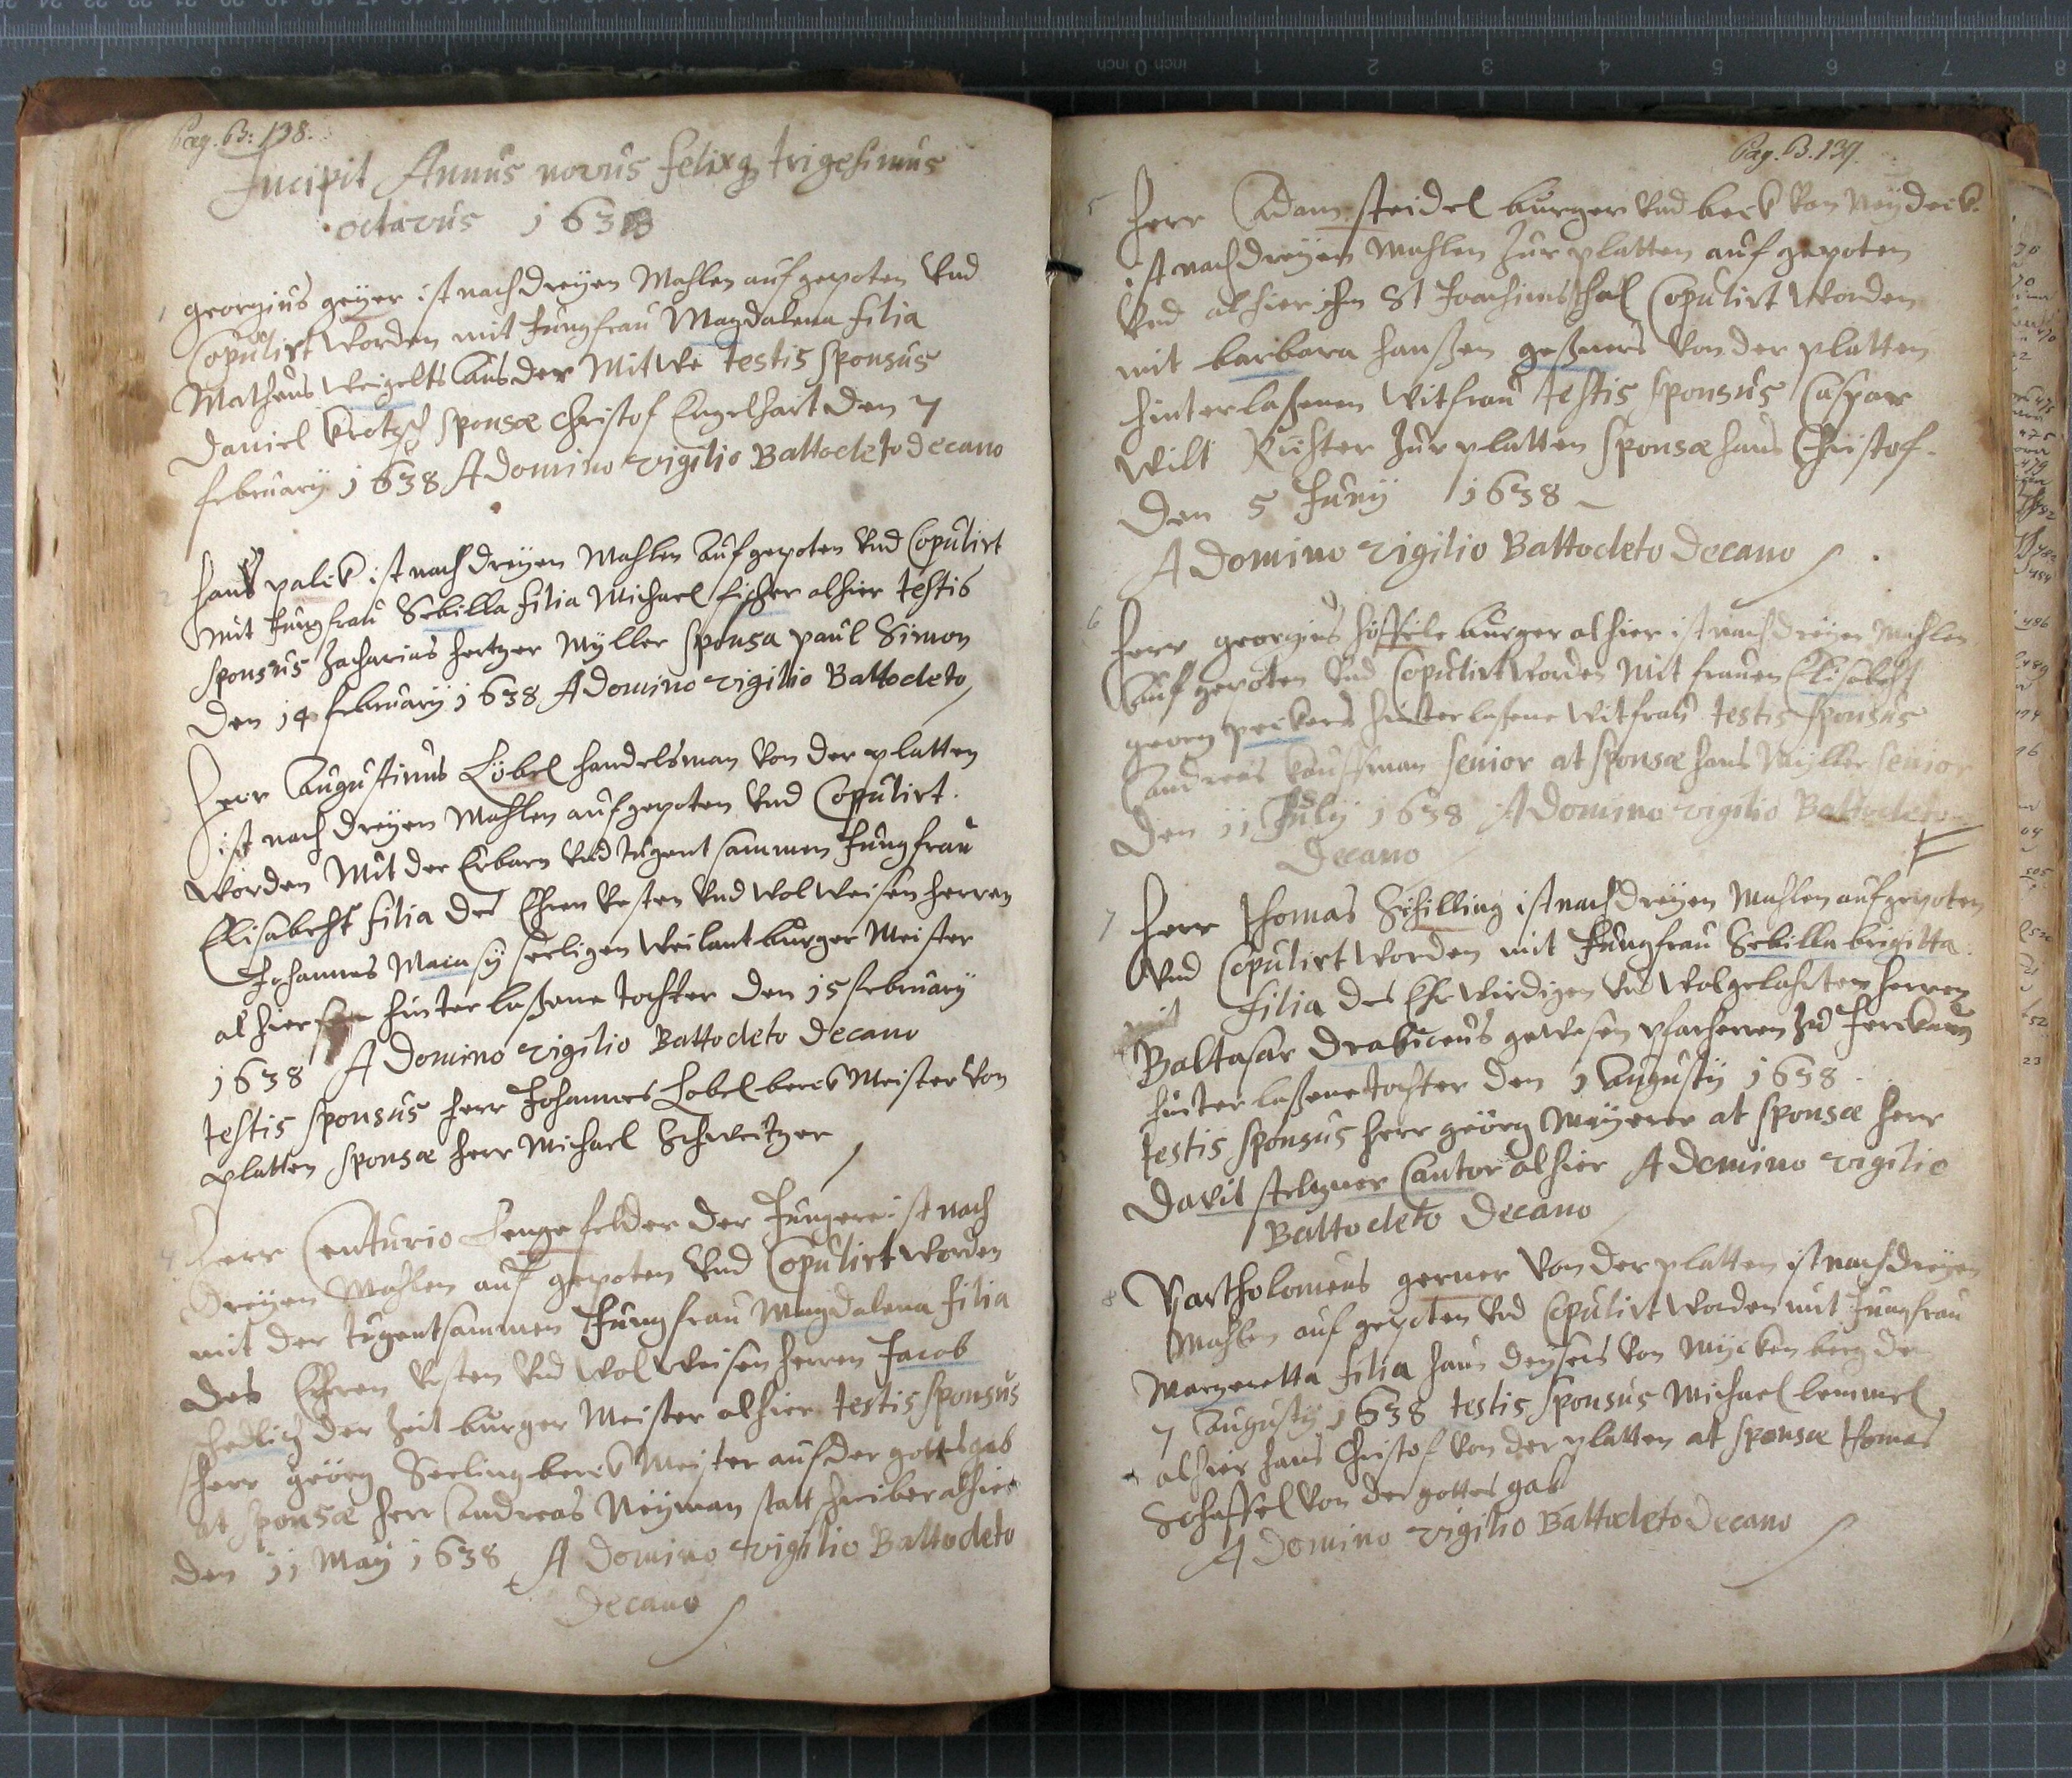 Pag. B: 138.
Incipit Annus novus felixq trigesimus
octavus 1638
1 georgius geÿer ist nach dreÿen Mahlen auf gepoten Vnd
Copulirt worden mit Jungfrau Magdalena filia
Matheus Weigelts aus der Mitwe testis sponsus
Daniel Krotzsch sponsæ Christof Engelhart den 7
februarÿ 1638 A Domino vigilio Battocleto Decano
2 hans palick ist nach dreÿen Mahlen Auf gepoten Vnd Copulirt
mit Jungfrau Sebilla filia Michael fischer alhier testis
sponsus Zacharias hertzer Mÿller sponsa paul Simon
Den 14 februarÿ 1638 A Domino vigilio Battocleto
3 Herr Augustinus Löbel handelsman Von der platten
ist nach dreÿen Mahlen auf gepoten Vnd Copulirt
worden Mit der Erbarn Vnd tugent sammen Jungfrau
Elisabeht filia des Ehren Vesten Vnd wol weisen herren
Johannes Macasÿ seeligen weilant burger Meister
alhier hinter laßene tochter den 15 februarÿ
1638 A Domino vigilio Battocleto Decano
testis sponsus herr Johannes Lobel berck Meister Von
platten sponsæ herr Michael Schweitzer
4 Herr Centurio Lengefelder der Jungere ist nach
Dreÿen Mahlen auf gepoten Vnd Copulirt worden
mit der tugentsammen Jungfrau Magdalena filia
des Ehren Vesten Vnd wol weisen herren Jacob
hedlich der Zeit burger Meister alhier testis sponsus
herr geörg Seeling berck Meister auf der gottes gab
at sponsæ herr Andreas Neÿman statt schriber alhier
den 11 Maÿ 1638 A Domino vigilio Battocleto
Decano
Pag. B. 139.
5 Herr Adam steidel burger Vnd beck Von Neÿdeck
ist nach dreÿen Mahlen Zur platten auf gepoten
Vnd alhier ihn St Joachimsthal Copulirt worden
mit barbara hanßen geßners Von der platten
hinterlaßenen Witfrau testis sponsus Caspar
Wilt Richter Zur platten sponsæ hans Christof
Den 5 Junÿ 1638
A Domino vigilio Battocleto Decano
6 Herr georgius burger alhier ist nach dreÿer Mahlen
Auf gepoten Vnd Copulirt worden Mit frauen Elisabeht
georg peckers hinterlaßene Witfrau testis sponsus
Andreas Kauffman senior at sponsæ hans Mÿller senior
Den 11 Julÿ 1638 A Domino vigilio Battocleto
Decano
7 Herr thomas Schilling ist nach dreÿen Mahlen auf gepoten
Vnd Copulirt worden mit Jungfrau Sebilla brigitta
filia des Ehrwirdigen Vnd Wolgelahrten herren
Baltasar Drabiceus gewesen pfarherren Zu
hinter laßene tochter den 1 Augustÿ 1638
testis sponsus herr geörg Meÿerer at sponsæ herr
Davit steltzner Cantor alhier A Domino vigilio
Battocleto Decano
8 Bartholomeus gerner Von der platten ist nach dreÿen
Mahlen auf gepoten Vnd Copulirt worden mit Jungfrau
Margeretta filia hans Deÿsers Von Mÿckenberg den
7 Augustÿ 1638 testis sponsus Michael lemmel
alhier hans Christof Von der platten at sponsæ thomas
Scheffel Von der gottes gab
A Domino vigilio Battocleto Decano